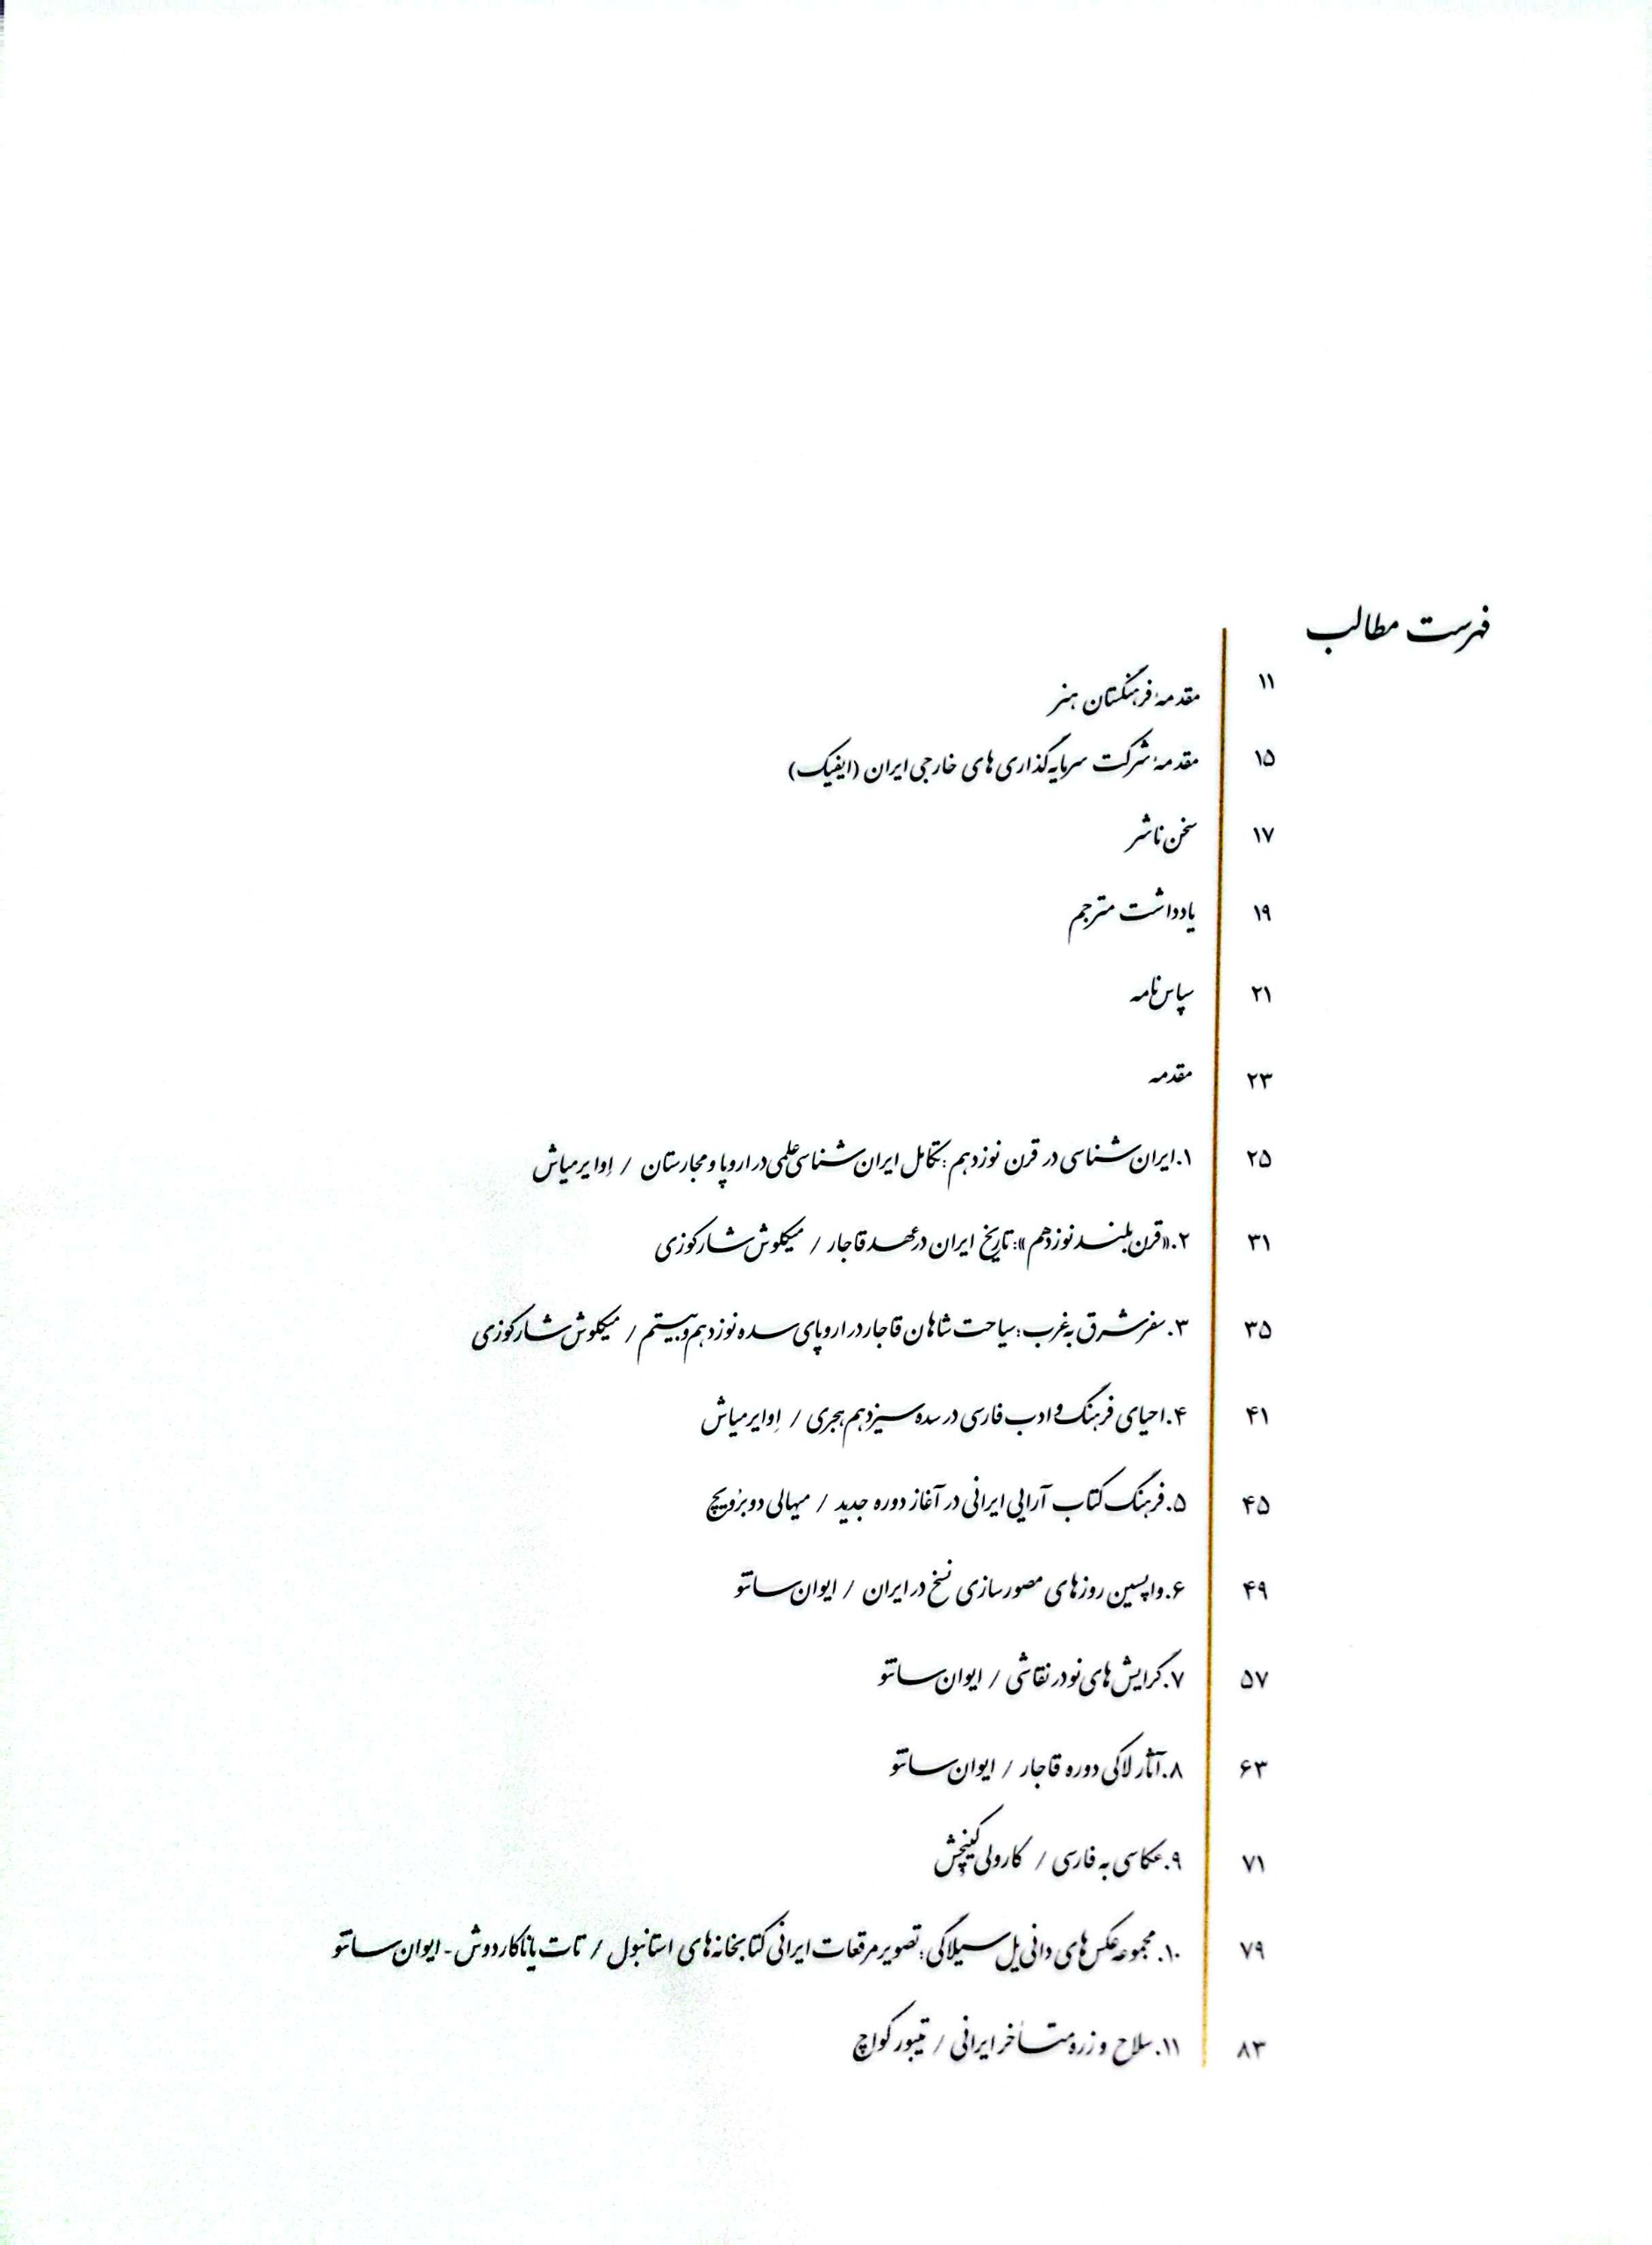 فهرست مطالب
۱۱ مقدمهٔ فرهنگستان هنر
۱۵ مقدمهٔ شرکت سرمایه‌گذاری‌های خارجی ایران (ایفیک)
۱۷ سخن ناشر
۱۹ یادداشت مترجم
۲۱ سپاس‌نامه
۲۳ مقدمه
۲۵ ۱.ایران‌شناسی در قرن نوزدهم؛ تکامل ایران‌شناسی علمی در اروپا و مجارستان / اِوا یرمیاش
۳۱ ۲.«قرن بلند نوزدهم»: تاریخ ایران در عهد قاجار / میکلوش شارکوزی
۳۵ ۳.سفر شرق به غرب؛ سیاحت شاهان قاجار در اروپای سده نوزدهم و بیستم / میکلوش شارکوزی
۴۱ ۴.احیای فرهنگ و ادب فارسی در سده سیزدهم هجری / اِوا یرمیاش
۴۵ ۵.فرهنگ کتاب آرایی ایرانی در آغاز دوره جدید / میهالی دوبرُویچ
۴۹ ۶.واپسین روزهای مصورسازی نسخ در ایران / ایوان سانتو
۵۷ ۷.گرایش‌های نو در نقاشی / ایوان سانتو
۶۳ ۸.آثار لاکی دوره قاجار / ایوان سانتو
۷۱ ۹.عکاسی به فارسی / کارولی کینچش
۷۹ ۱۰.مجموعه عکس‌های دانی‌یل سیلاگی؛ تصویر مرقعات ایرانی کتابخانه‌های استانبول / تات یاناکاردوش - ایوان سانتو
۸۳ ۱۱.سلاح و زره متأخر ایرانی / تیبور کواچ